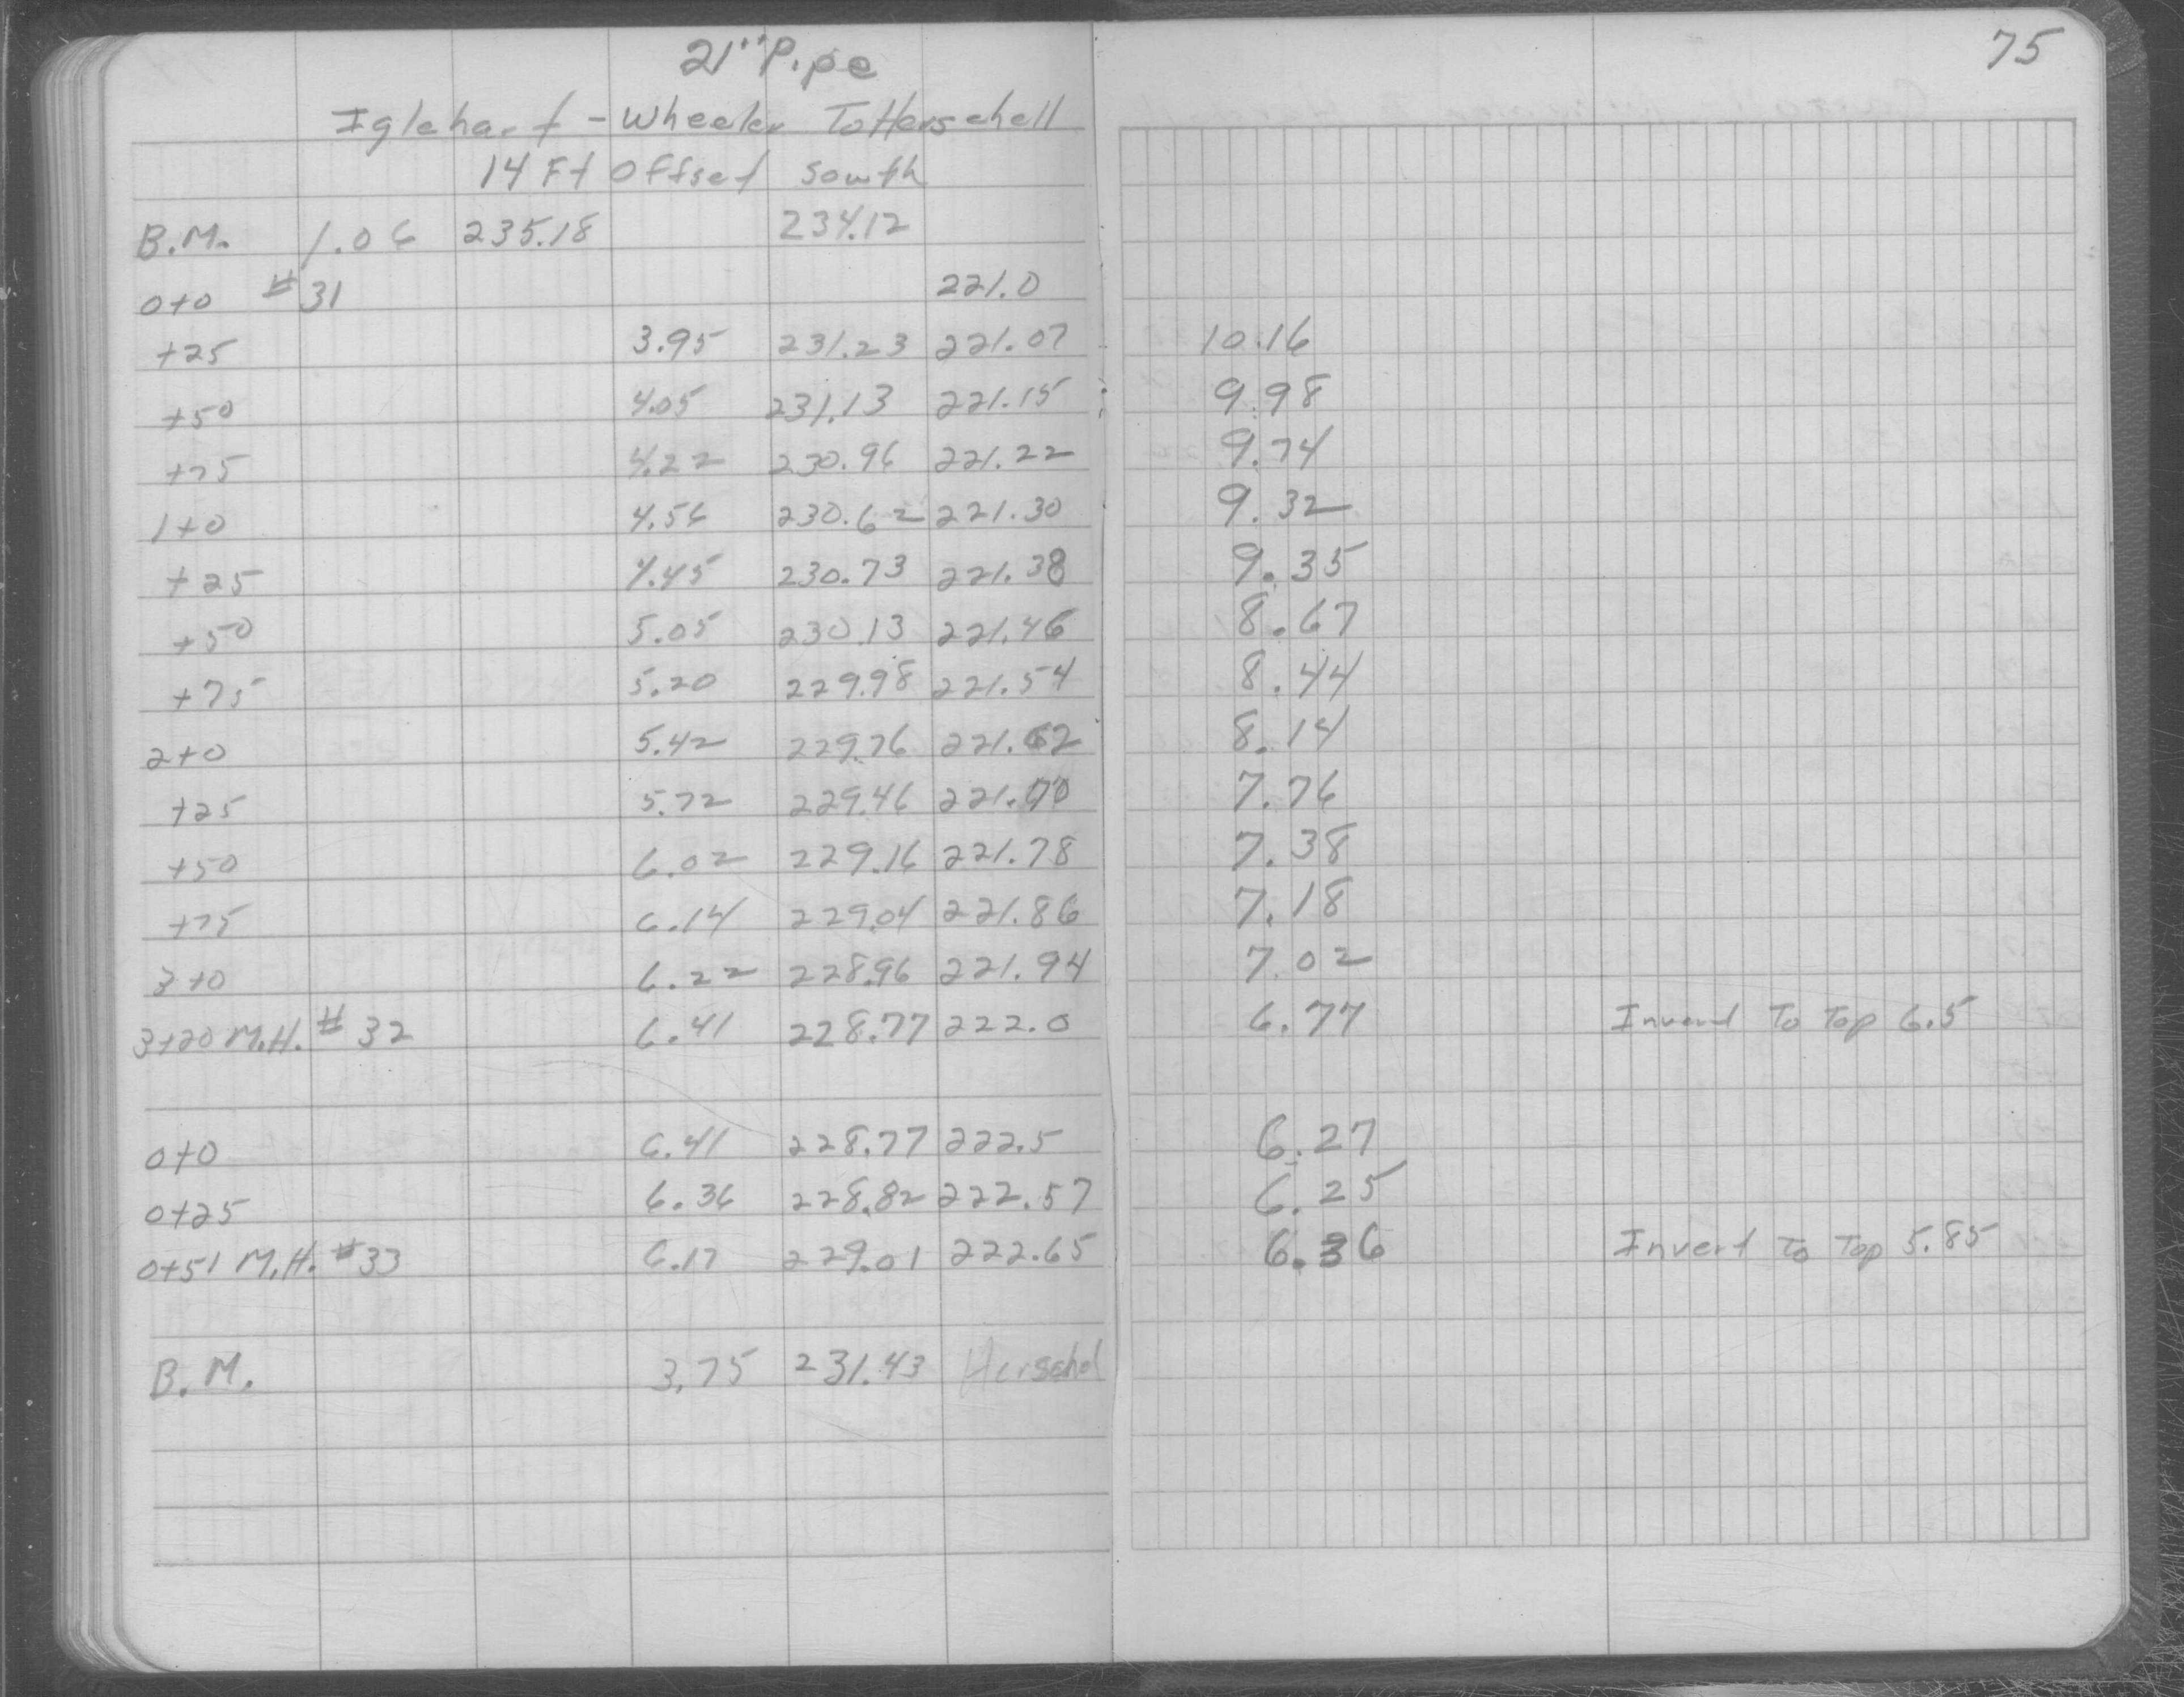 75
21" Pipe
Iglehart - Wheeler To Herschell
14 Ft Offset South
B.M. 1.06 235.18 234.12
0+0 #31 221.0
+25 3.95 231.23 221.07 10.16
+50 4.05 231.13 221.15 9.98
+75 4.22 230.96 221.22 9.74
1+0 4.56 230.62 221.30 9.32
+25 4.45 230.73 221.38 9.35
+50 5.05 230.13 221.46 8.67
+75 5.20 229.98 221.54 8.44
2+0 5.42 229.76 221.62 8.14
+25 5.72 229.46 221.70 7.76
+50 6.02 229.16 221.78 7.38
+75 6.14 229.04 221.86 7.18
3+0 6.22 228.96 221.94 7.02
3+20 M.H. #32 6.41 228.77 222.0 6.77 Invert To Top 6.5
0+0 6.41 228.77 222.5 6.27
0+25 6.36 228.82 222.57 6.25
0+51 M.H. #33 6.17 229.01 222.65 6.36 Invert To Top 5.85
B.M. 3.75 231.43 Herschel